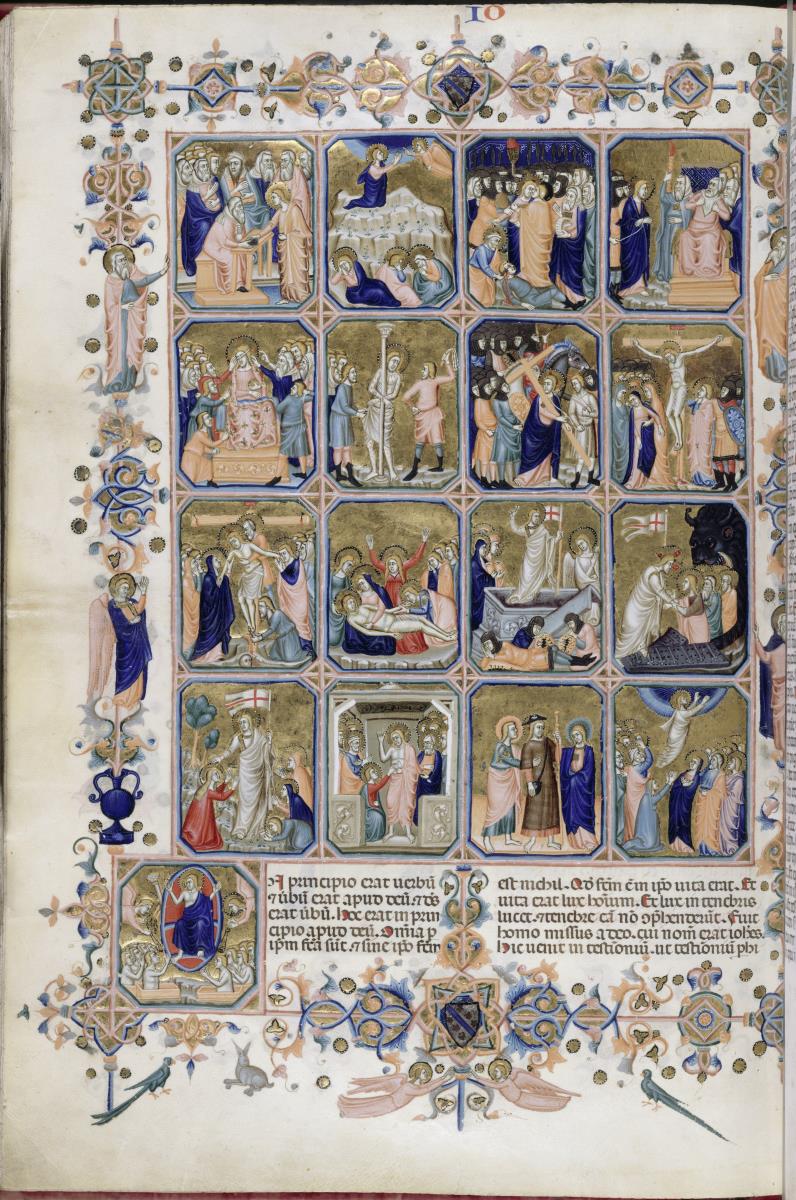 IO
N principio erat uerbū
⁊ ūbū erat apud deū: ⁊ dẽ
erat ūbū. hoc erat in prin
cipio apud deū. Omnia p
ipm fcā sūt: ⁊ sine ipo fcm
est nichil. Qd̄ fcm̄ ē in ipo uita erat. Et
uita erat lux hoīum. Et lux in tenebris
lucet. ⁊ tenebre eā nō cōphenderūt. Fuit
homo missus a deo. cui nom̄ erat iohēs.
hic uenit in testimoniū. ut testimoniū phi